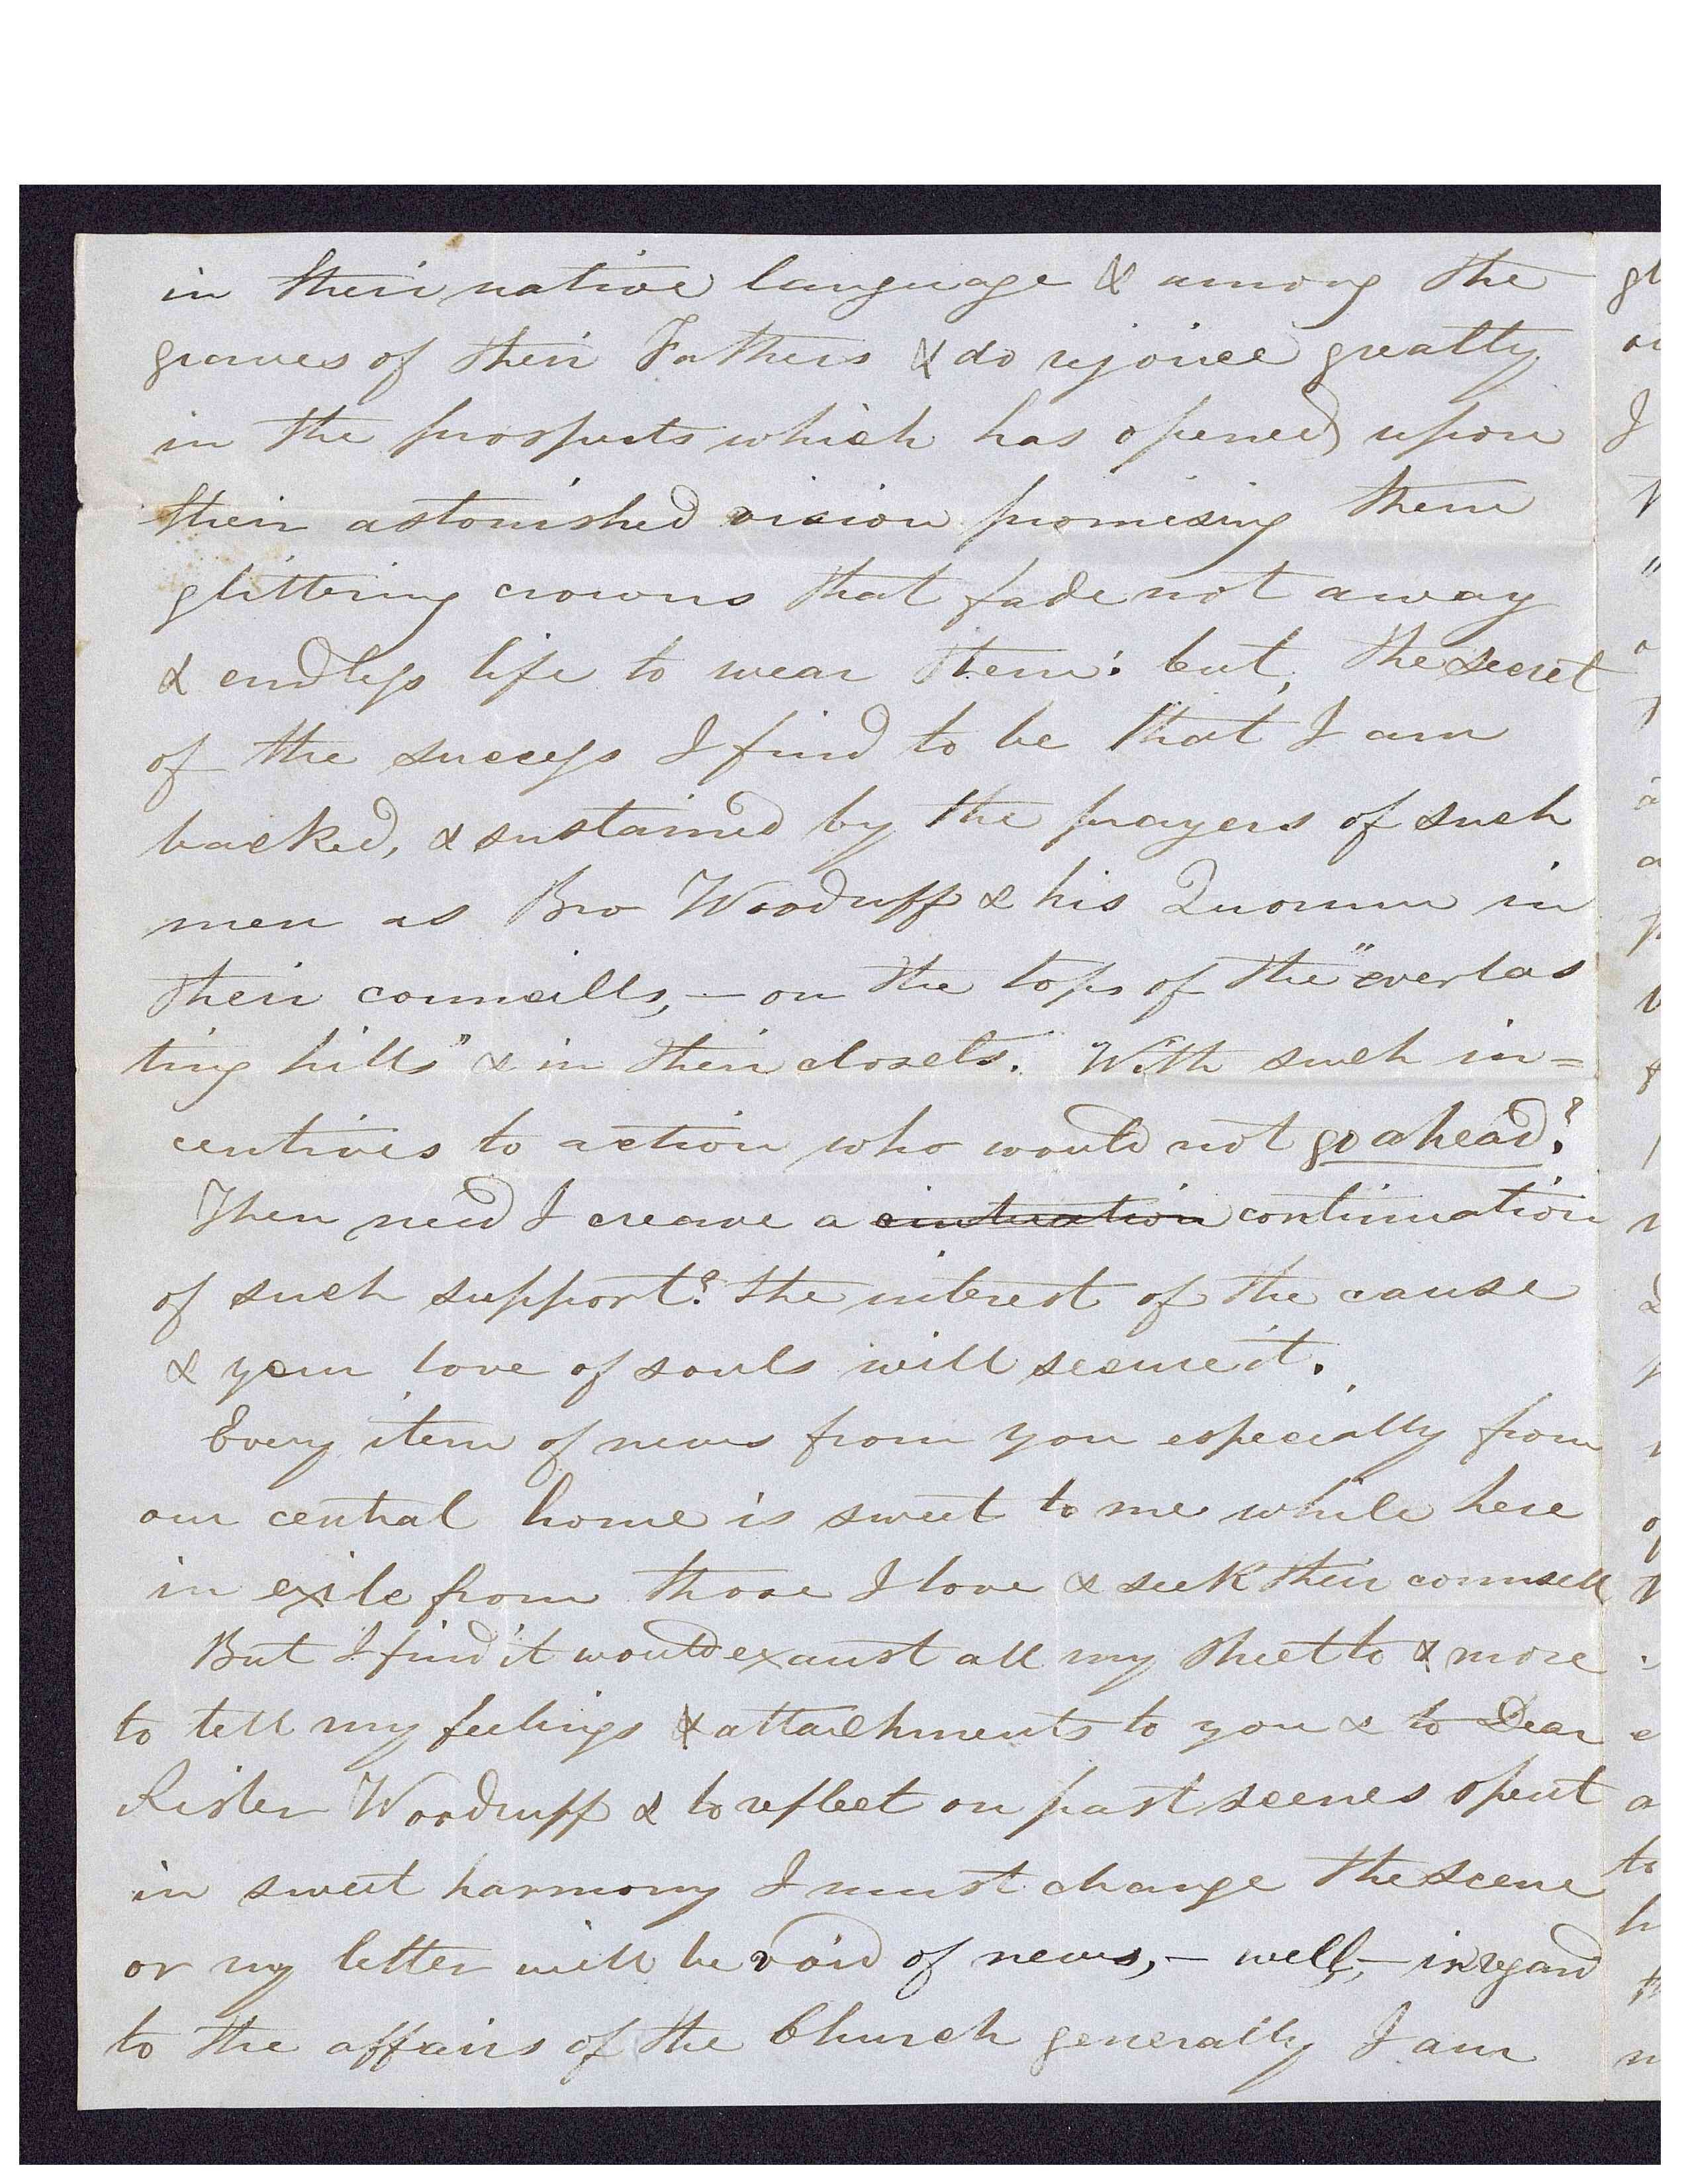 in their native language & among the
graves of their Fathers & do rejoice greatly
in the prospects which has opened upon
their astonished vision promising them
glittering crowns that fade not away
& endless life to wear them: but, the secret
of the success I find to be that I am
backed, & sustained by the prayers of such
men as Bro Woodruff & his Quorum in
their councills, — on the tops of the "everlas
ting hills" & in their closets. With such in=
centives to action who would not go ahead?
Then need I creave a continuation
of such support? the interest of the cause
& your love of souls will secure it.
Every item of news from you especially from
our central home is sweet to me while here
in exile from those I love & seek their counsell
But I find it would exaust all my sheet to & more
to tell my feelings & attachments to you & to Dear
Sister Woodruff & to reflect on past scenes spent
in sweet harmony I must change the scene
or my letter will be void of news, — well, — in regard
to the affairs of the Church generally I am